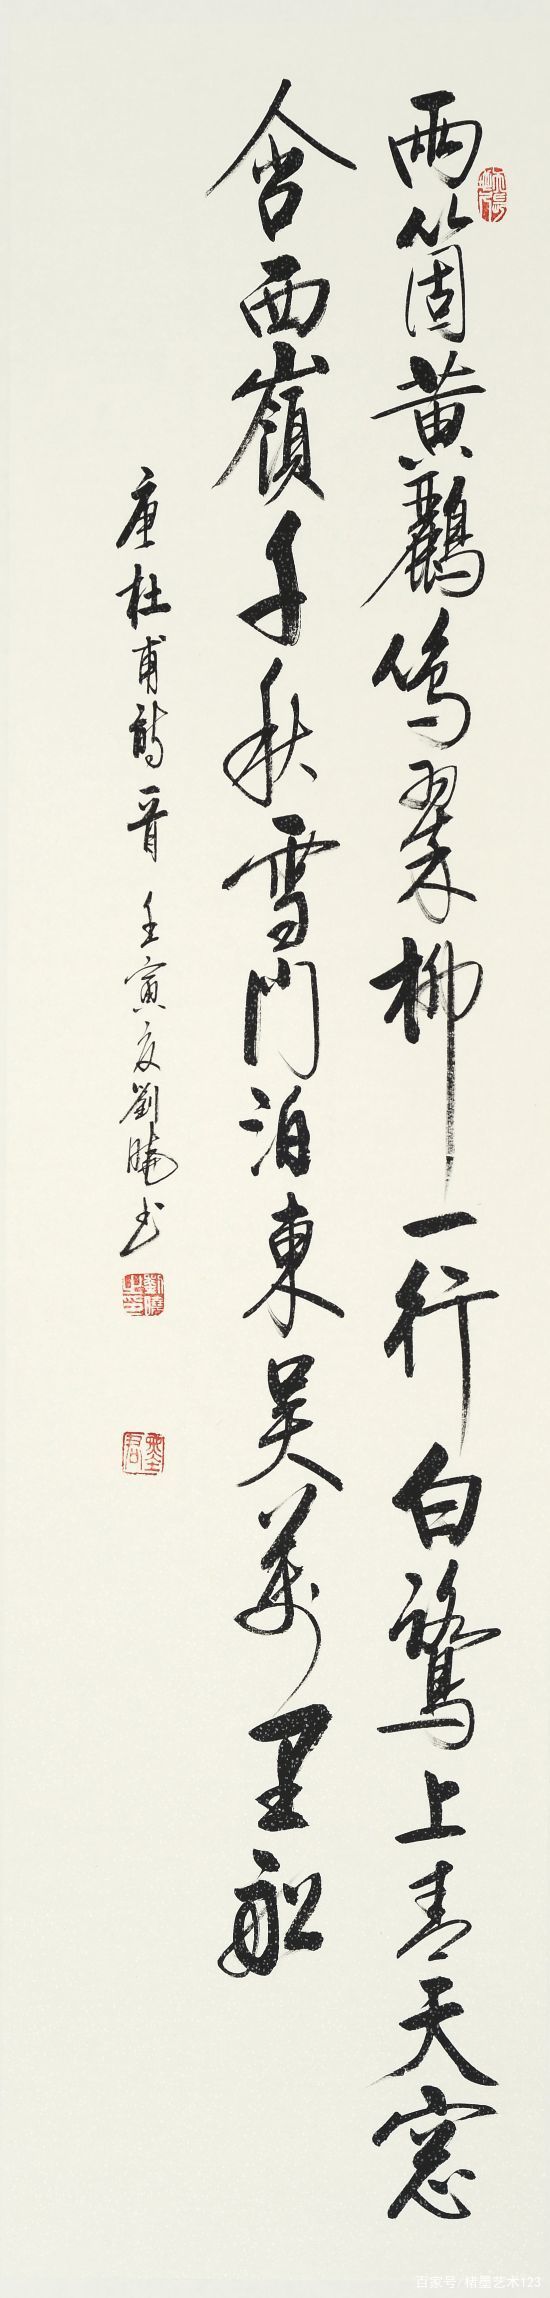 兩箇黄鸝鳴翠柳一行白鷺上青天窓
含西嶺千秋雪門泊東吴萬里船
唐杜甫詩一首壬寅夏劉曉書
劉曉之印
百家号/楮墨艺术123